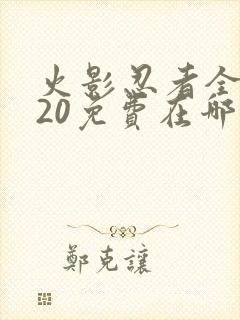 火影忍者全
20免費在哪
鄭克讓